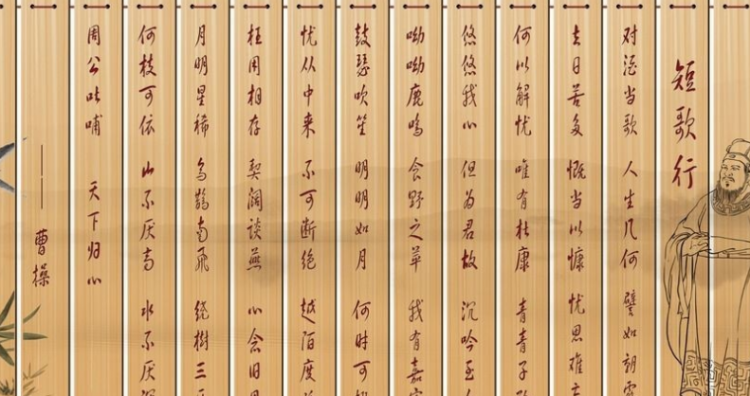 短歌行
对酒当歌 人生几何 譬如朝露
去日苦多 慨当以慷 忧思难
何以解忧 唯有杜康 青青子
悠悠我心 但为君故 沉吟至
呦呦鹿鸣 食野之苹 我有嘉
鼓瑟吹笙 明明如月 何时可
忧从中来 不可断绝 越陌度
枉用相存 契阔谈燕 心念旧
月明星稀 乌鹊南飞 绕樹三
何枝可依 山不厌高 水不厌
周公吐哺 天下归心
——曹操